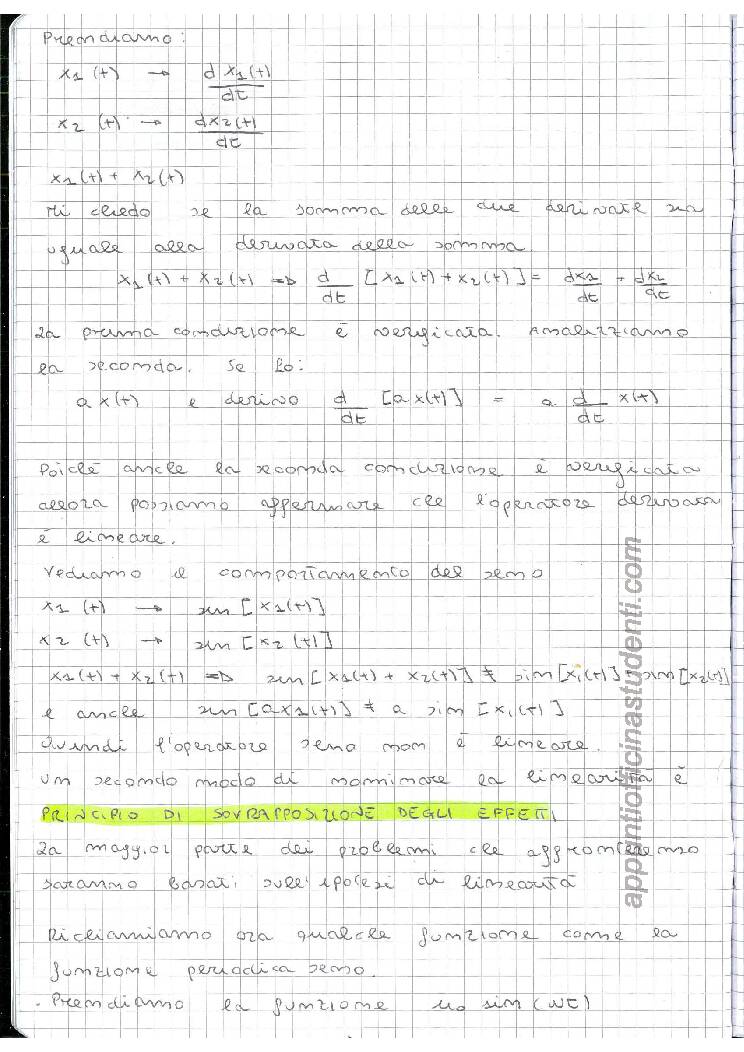 Prendiamo:
x1 (t) → d x1(t)/dt
x2 (t) → dx2(t)/dt
x1(t) + x2(t)
Mi chiedo se la somma delle due derivate sia
uguale alla derivata della somma
x1(t) + x2(t) => d/dt [x1(t) + x2(t)] = dx1/dt + dx2/dt
La prima condizione è verificata. Analizziamo
la seconda. Se ho:
a x(t) e derivo d/dt [a x(t)] = a d/dt x(t)
Poiché anche la seconda condizione è verificata
allora possiamo affermare che l'operatore derivata
è lineare.
Vediamo il comportamento del seno
x1 (t) → sin [x1(t)]
x2 (t) → sin [x2 (t)]
x1(t) + x2(t) => sin [x1(t) + x2(t)] ≠ sin [x1(t)] + sin [x2(t)]
e anche sin [a x1(t)] ≠ a sin [x1(t)]
Quindi l'operatore seno non è lineare.
Un secondo modo di nominare la linearità è
PRINCIPIO DI SOVRAPPOSIZIONE DEGLI EFFETTI
La maggior parte dei problemi che affronteremo
saranno basati sull'ipotesi di linearità
Richiamiamo ora qualche funzione come la
funzione periodica seno.
Prendiamo la funzione u0 sin (wt)
appuntiofficinastudenti.com